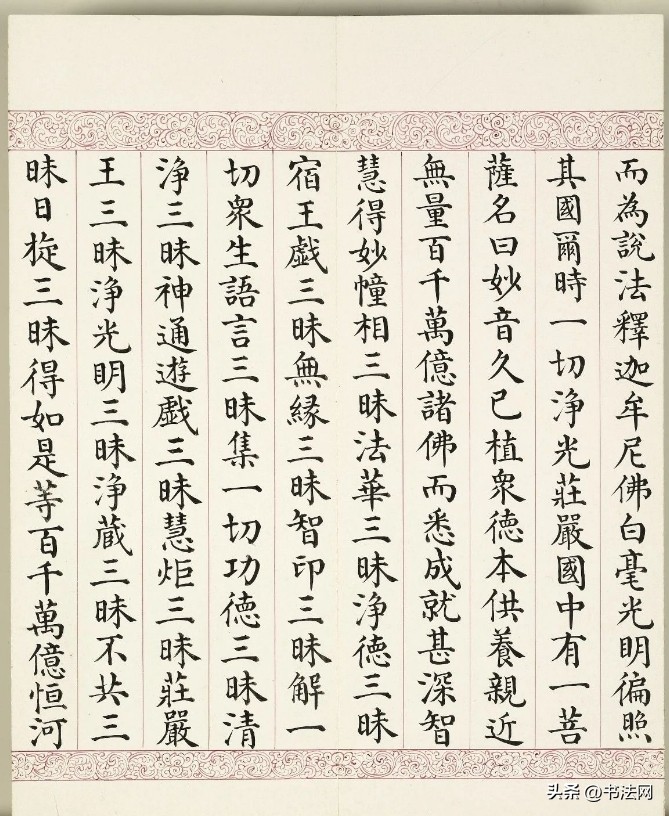 而為說法釋迦牟尼佛白毫光明徧照
其國爾時一切淨光莊嚴國中有一菩
薩名曰妙音久已植衆德本供養親近
無量百千萬億諸佛而悉成就甚深智
慧得妙幢相三昧法華三昧淨德三昧
宿王戲三昧無緣三昧智印三昧解一
切衆生語言三昧集一切功德三昧清
淨三昧神通遊戲三昧慧炬三昧莊嚴
王三昧淨光明三昧淨藏三昧不共三
昧日旋三昧得如是等百千萬億恒河
头条 @书法网